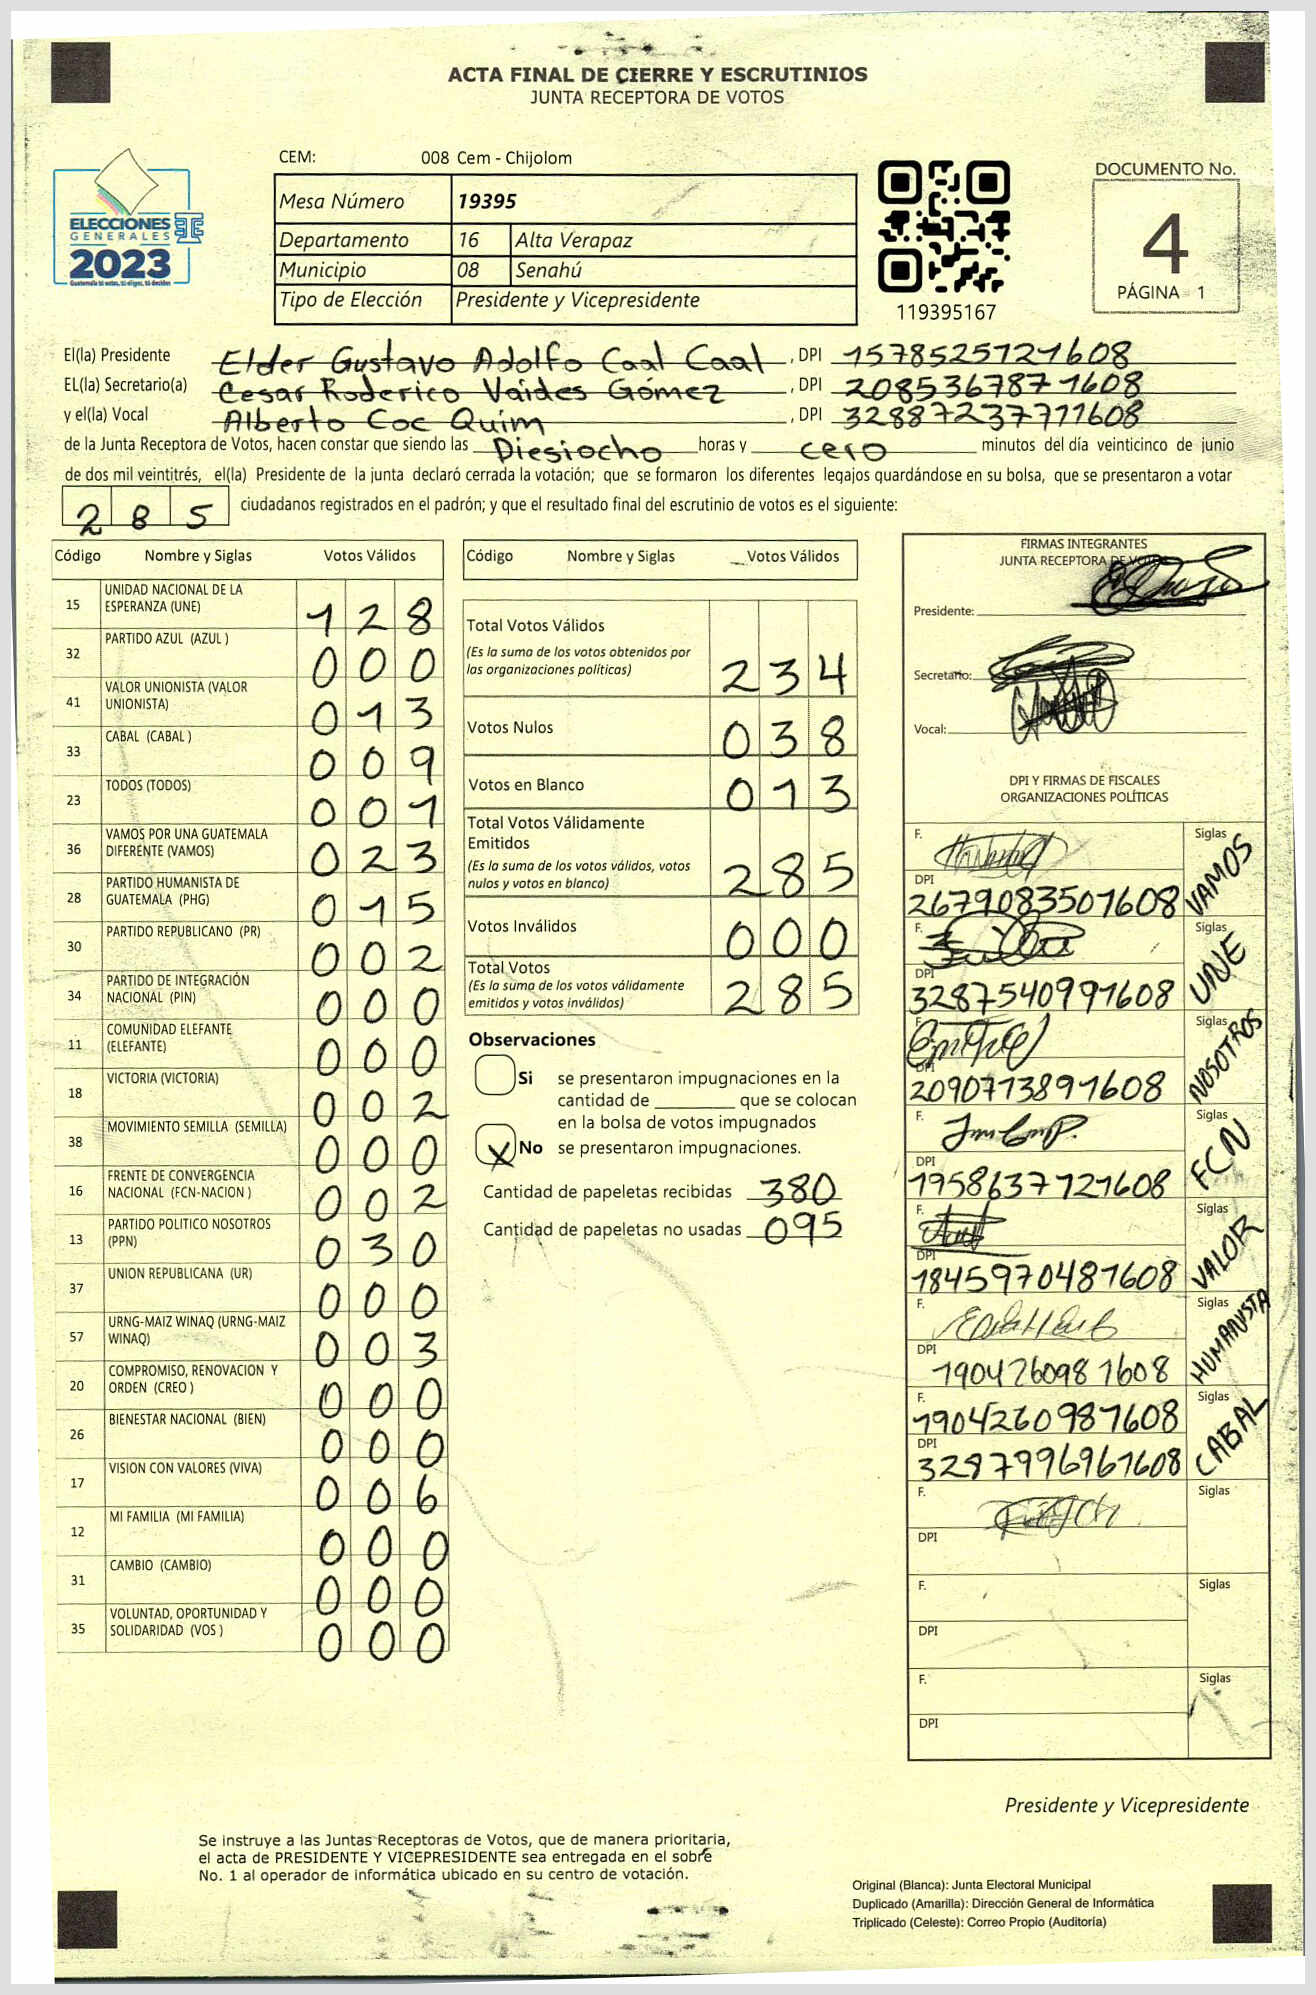 ACTA FINAL DE CIERRE Y ESCRUTINIOS
JUNTA RECEPTORA DE VOTOS
CEM: 008 Cem - Chijolom
ELECCIONES
GENERALES
2023
Guatemala tú votas, tú eliges, tú decides
Mesa Número 19395
Departamento 16 Alta Verapaz
Municipio 08 Senahú
Tipo de Elección Presidente y Vicepresidente
119395167
DOCUMENTO No.
4
PÁGINA 1
El(la) Presidente Elder Gustavo Adolfo Caal Caal, DPI 1578525121608
EL(la) Secretario(a) Cesar Roderico Vaides Gómez, DPI 2085367871608
y el(la) Vocal Alberto Coc Quim, DPI 3288723771608
de la Junta Receptora de Votos, hacen constar que siendo las Diesiocho horas y cero minutos del día veinticinco de junio
de dos mil veintitrés, el(la) Presidente de la junta declaró cerrada la votación; que se formaron los diferentes legajos guardándose en su bolsa, que se presentaron a votar
285 ciudadanos registrados en el padrón; y que el resultado final del escrutinio de votos es el siguiente:
Código Nombre y Siglas Votos Válidos
15 UNIDAD NACIONAL DE LA ESPERANZA (UNE) 128
32 PARTIDO AZUL (AZUL ) 000
41 VALOR UNIONISTA (VALOR UNIONISTA) 013
33 CABAL (CABAL ) 009
23 TODOS (TODOS) 001
36 VAMOS POR UNA GUATEMALA DIFERENTE (VAMOS) 023
28 PARTIDO HUMANISTA DE GUATEMALA (PHG) 015
30 PARTIDO REPUBLICANO (PR) 002
34 PARTIDO DE INTEGRACIÓN NACIONAL (PIN) 000
11 COMUNIDAD ELEFANTE (ELEFANTE) 000
18 VICTORIA (VICTORIA) 002
38 MOVIMIENTO SEMILLA (SEMILLA) 000
16 FRENTE DE CONVERGENCIA NACIONAL (FCN-NACION ) 002
13 PARTIDO POLITICO NOSOTROS (PPN) 030
37 UNION REPUBLICANA (UR) 000
57 URNG-MAIZ WINAQ (URNG-MAIZ WINAQ) 003
20 COMPROMISO, RENOVACION Y ORDEN (CREO ) 000
26 BIENESTAR NACIONAL (BIEN) 000
17 VISION CON VALORES (VIVA) 006
12 MI FAMILIA (MI FAMILIA) 000
31 CAMBIO (CAMBIO) 000
35 VOLUNTAD, OPORTUNIDAD Y SOLIDARIDAD (VOS ) 000
Código Nombre y Siglas Votos Válidos
Total Votos Válidos
(Es la suma de los votos obtenidos por
las organizaciones políticas) 234
Votos Nulos 038
Votos en Blanco 013
Total Votos Válidamente
Emitidos
(Es la suma de los votos válidos, votos
nulos y votos en blanco) 285
Votos Inválidos 000
Total Votos
(Es la suma de los votos válidamente
emitidos y votos inválidos) 285
Observaciones
Si se presentaron impugnaciones en la
cantidad de ________ que se colocan
en la bolsa de votos impugnados
X No se presentaron impugnaciones.
Cantidad de papeletas recibidas 380
Cantidad de papeletas no usadas 095
FIRMAS INTEGRANTES
JUNTA RECEPTORA DE VOTOS
Presidente:
Secretario:
Vocal:
DPI Y FIRMAS DE FISCALES
ORGANIZACIONES POLÍTICAS
F. Siglas VAMOS
DPI 2679083501608
F. Siglas UNE
DPI 3287540991608
F. Siglas NOSOTROS
DPI 2090713891608
F. Siglas FCN
DPI 1958637121608
F. Siglas VALOR
DPI 1845970481608
F. Siglas HUMANISTA
DPI 1904260981608
F. 1904260981608 Siglas CABAL
DPI 3287996961608
F. Siglas
DPI
F. Siglas
DPI
F. Siglas
DPI
Presidente y Vicepresidente
Se instruye a las Juntas Receptoras de Votos, que de manera prioritaria,
el acta de PRESIDENTE Y VICEPRESIDENTE sea entregada en el sobre
No. 1 al operador de informática ubicado en su centro de votación.
Original (Blanca): Junta Electoral Municipal
Duplicado (Amarilla): Dirección General de Informática
Triplicado (Celeste): Correo Propio (Auditoría)